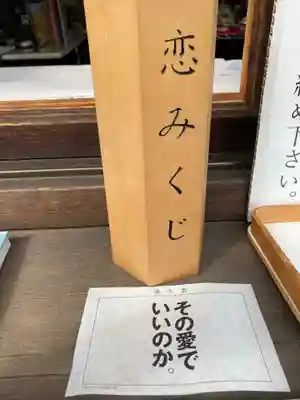 恋みくじ
め下さい。
その愛で
いいのか。